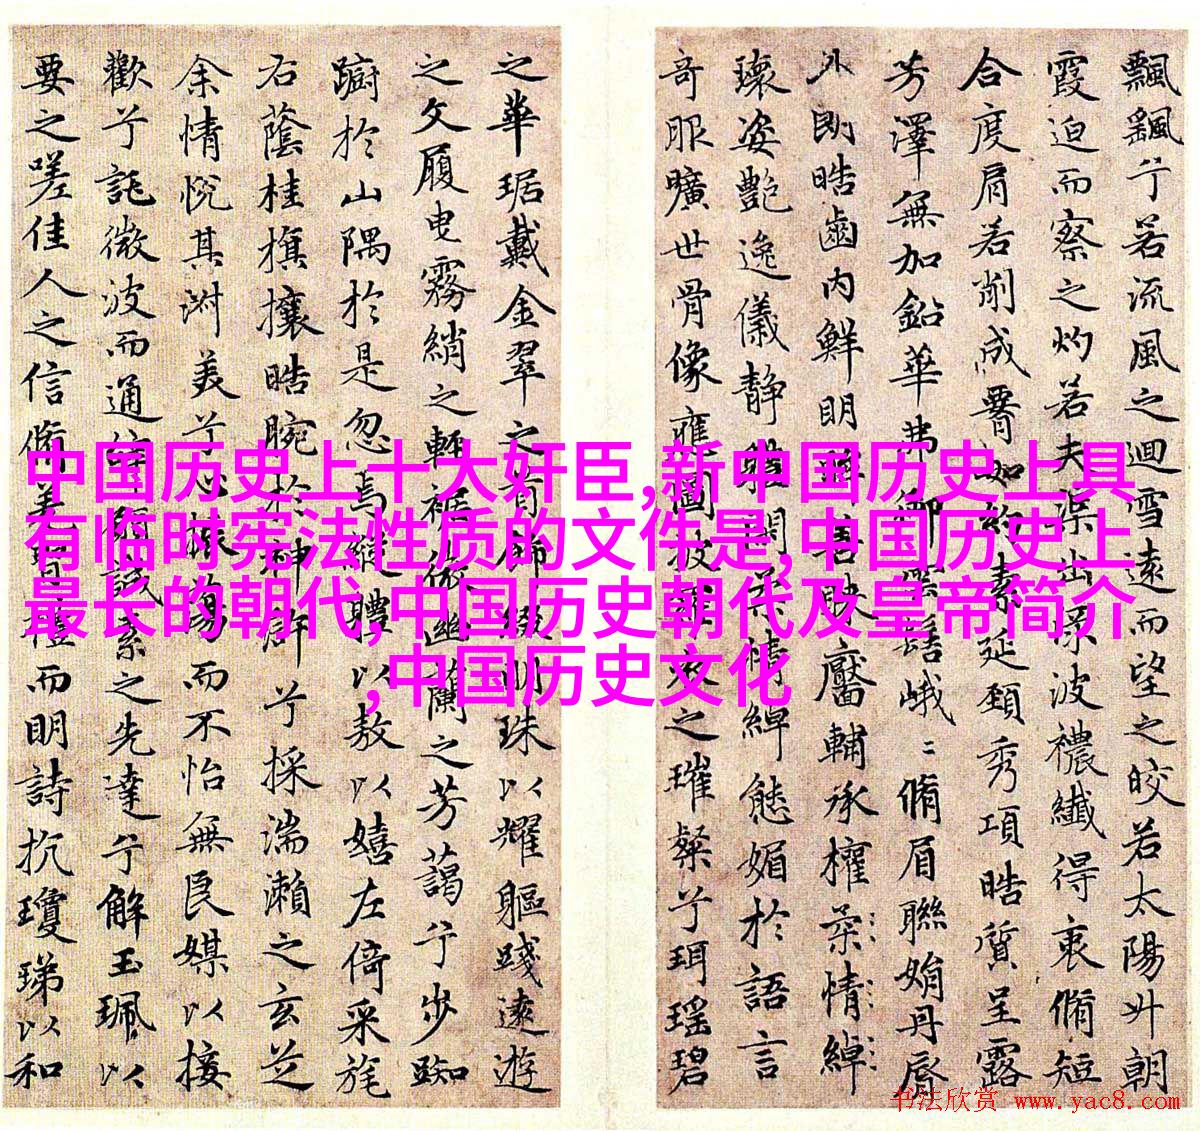 飄飖兮若流風之迴雪遠而望之皎若太陽升朝
霞迫而察之灼若夫渠出淥波襛纖得衷脩短
合度肩若削成腰如約素延頸秀項皓質呈露
芳澤無加鉛華弗御雲髻峨〻脩眉聯娟丹脣
外朗皓齒內鮮明眸善睞靨輔承權柔情綽
瓌姿艷逸儀靜體閑柔情綽態媚於語言
奇服曠世骨像應圖披羅衣之璀粲兮珥瑤碧
之華琚戴金翠之首飾綴明珠以耀軀踐遠遊
之文履曳霧綃之輕裾微幽蘭之芳藹兮步踟
躕於山隅於是忽焉縱體以敖以嬉左倚采旄
右蔭桂旗攘皓腕於神滸兮採湍瀨之玄芝
余情悅其淑美兮心振蕩而不怡無良媒以接
歡兮託微波而通辭願誠素之先達兮解玉珮以
要之嗟佳人之信脩羌習禮而明詩抗瓊珶以和
中国历史上十大奸臣,新中国历史上具
有临时宪法性质的文件是,中国历史上
最长的朝代,中国历史朝代及皇帝简介
,中国历史文化
书法欣赏 www.yac8.com